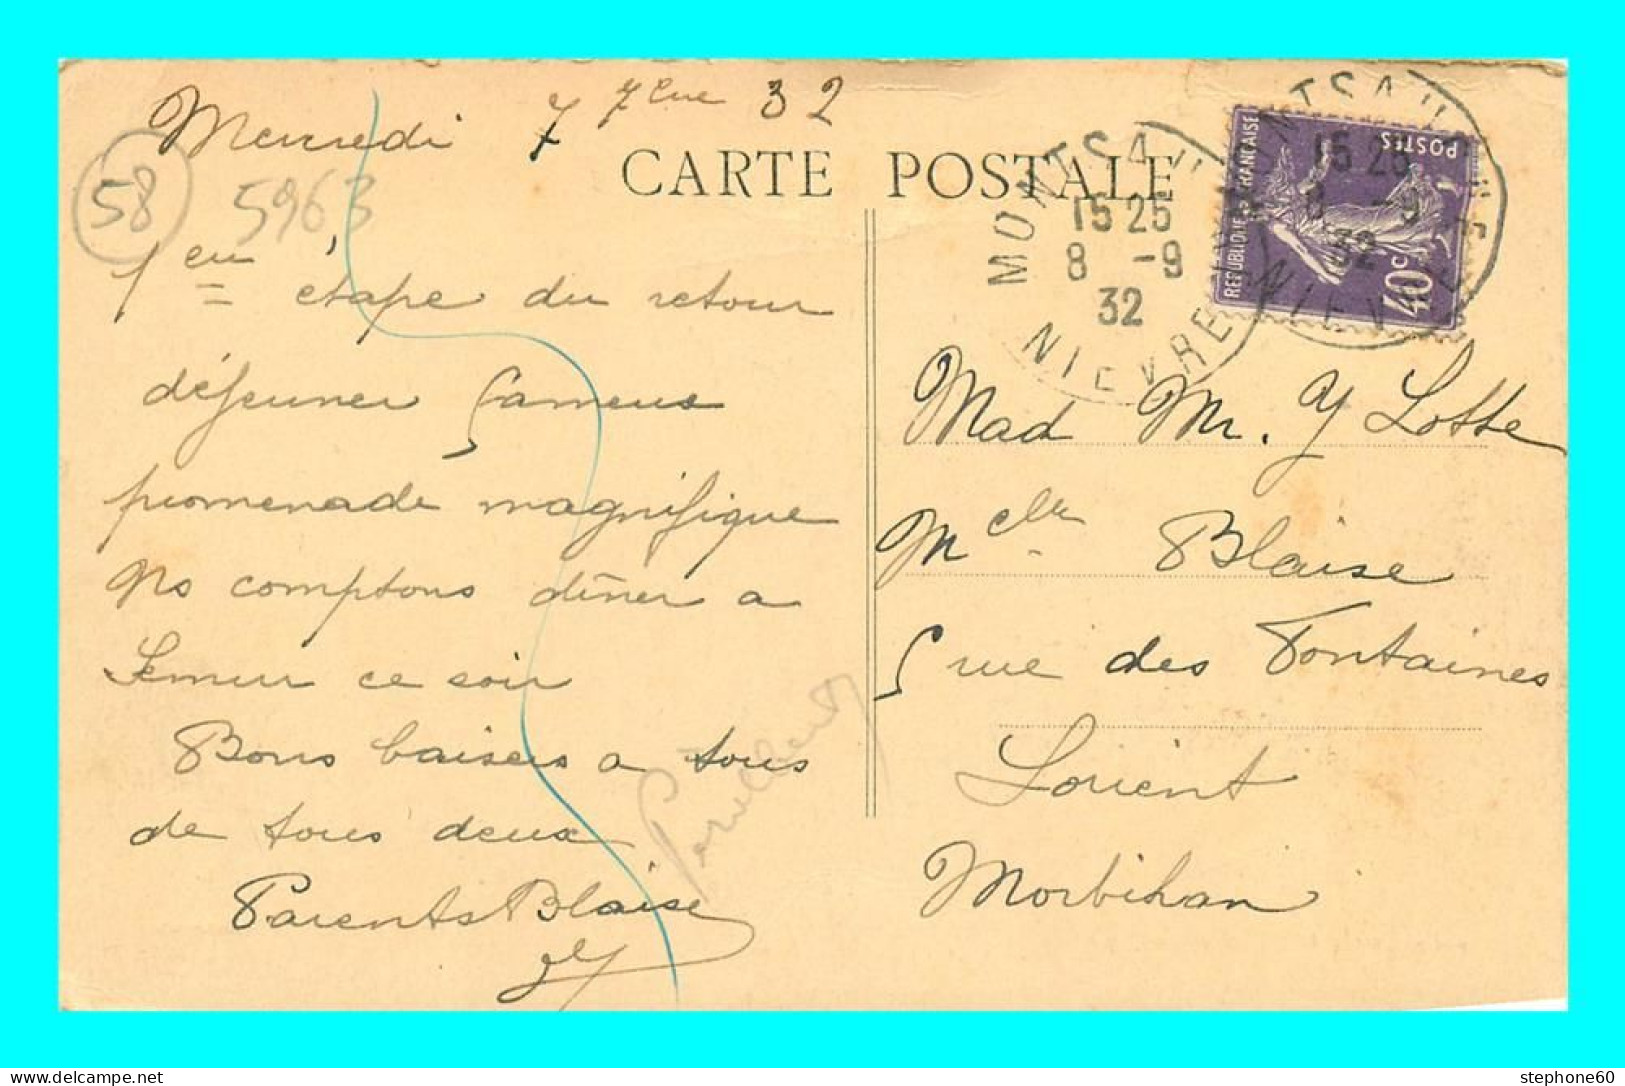 Mercredi 7 7bre 32
58
5963
CARTE POSTALE
1ere étape du retour
déjeuner fameux
promenade magnifique
Ns comptons dîner a
Semur ce soir
Bons baisers a tous
de tous deux
Parents Blaise
MONTSAU
15 25
8 -9
32
NIEVRE
MONTSAU
15 25
8 -9
32
NIEVRE
POSTES
REPUBLIQUE FRANCAISE
40c
Mad Mr. Y Lotte
Melle Blaise
5 rue des Fontaines
Lorient
Morbihan
stephone60